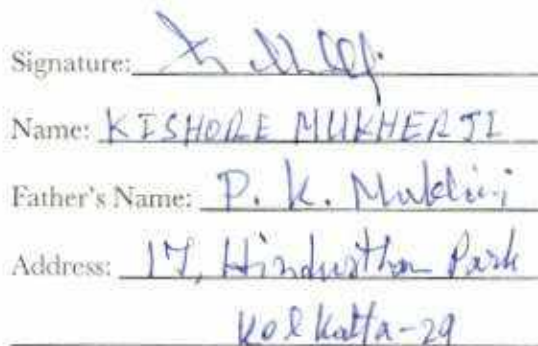 Signature:
Name: KISHORE MUKHERJI
Father's Name: P. K. Mukherji
Address: 17, Hindusthan Park
Kolkatta-29